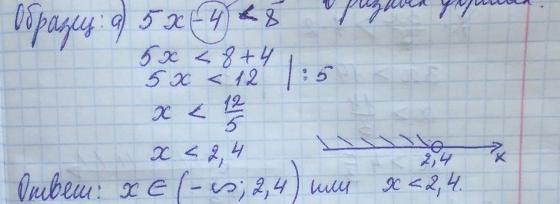 Образец: а) 5x - 4 < 8
5x < 8 + 4
5x < 12 | : 5
x < 12/5
x < 2,4
2,4 x
Ответ: x ∈ (-∞; 2,4) или x < 2,4.